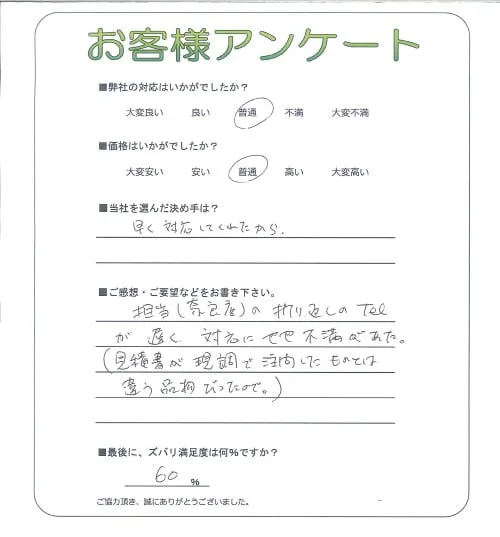 お客様アンケート
■弊社の対応はいかがでしたか？
大変良い 良い 普通 不満 大変不満
■価格はいかがでしたか？
大変安い 安い 普通 高い 大変高い
■当社を選んだ決め手は？
早く対応してくれたから.
■ご感想・ご要望などをお書き下さい。
担当(奈良店)の折り返しのTel
が遅く 対応にやや不満があた。
(見積書が現調で注向したものとは
違う品物だったので。)
■最後に、ズバリ満足度は何%ですか？
60 %
ご協力頂き、誠にありがとうございました。